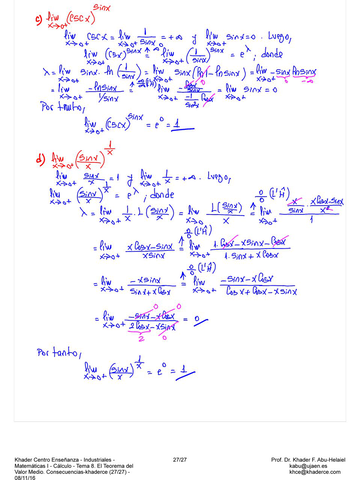 c) lim x→0+ (cscx)^sinx
lim x→0+ cscx = lim x→0+ 1/sinx = +∞ y lim x→0+ sinx = 0. Luego,
lim x→0+ (cscx)^sinx = lim x→0+ (1/sinx)^sinx = e^λ, donde
λ = lim x→0+ sinx · ln(1/sinx) = lim x→0+ sinx (ln1 - lnsinx) = lim x→0+ -sinx lnsinx
= lim x→0+ -lnsinx / 1/sinx = lim x→0+ = lim x→0+ sinx = 0
Por tanto,
lim x→0+ (cscx)^sinx = e^0 = 1
d) lim x→0+ (sinx/x)^1/x
lim x→0+ sinx/x = 1 y lim x→0+ 1/x = +∞. Luego,
lim x→0+ (sinx/x)^1/x = e^λ, donde 0/0 (L'H)
λ = lim x→0+ 1/x · L(sinx/x) = lim x→0 L(sinx/x) / x = lim x→0+ x/sinx · xcosx-sinx/x² / 1
0/0 (L'H)
= lim x→0+ xcosx-sinx / xsinx = lim x→0+ 1·cosx-xsinx-cosx / 1·sinx+xcosx
0/0 (L'H)
= lim x→0+ -xsinx / sinx+xcosx = lim x→0+ -sinx-xcosx / cosx+cosx-xsinx
= lim x→0+ -sinx-xcosx / 2cosx-xsinx = 0
Por tanto,
lim x→0+ (sinx/x)^1/x = e^0 = 1
Khader Centro Enseñanza - Industriales -
Matemáticas I - Cálculo - Tema 8. El Teorema del
Valor Medio. Consecuencias-khaderce (27/27) -
08/11/16
27/27
Prof. Dr. Khader F. Abu-Helaiel
kabu@ujaen.es
khce@khaderce.com